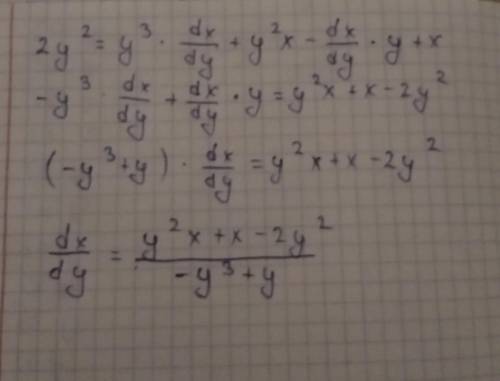 2y² = y³ · dx/dy + y²x - dx/dy · y + x
-y³ · dx/dy + dx/dy · y = y²x + x - 2y²
(-y³ + y) · dx/dy = y²x + x - 2y²
dx/dy = (y²x + x - 2y²)/(-y³ + y)